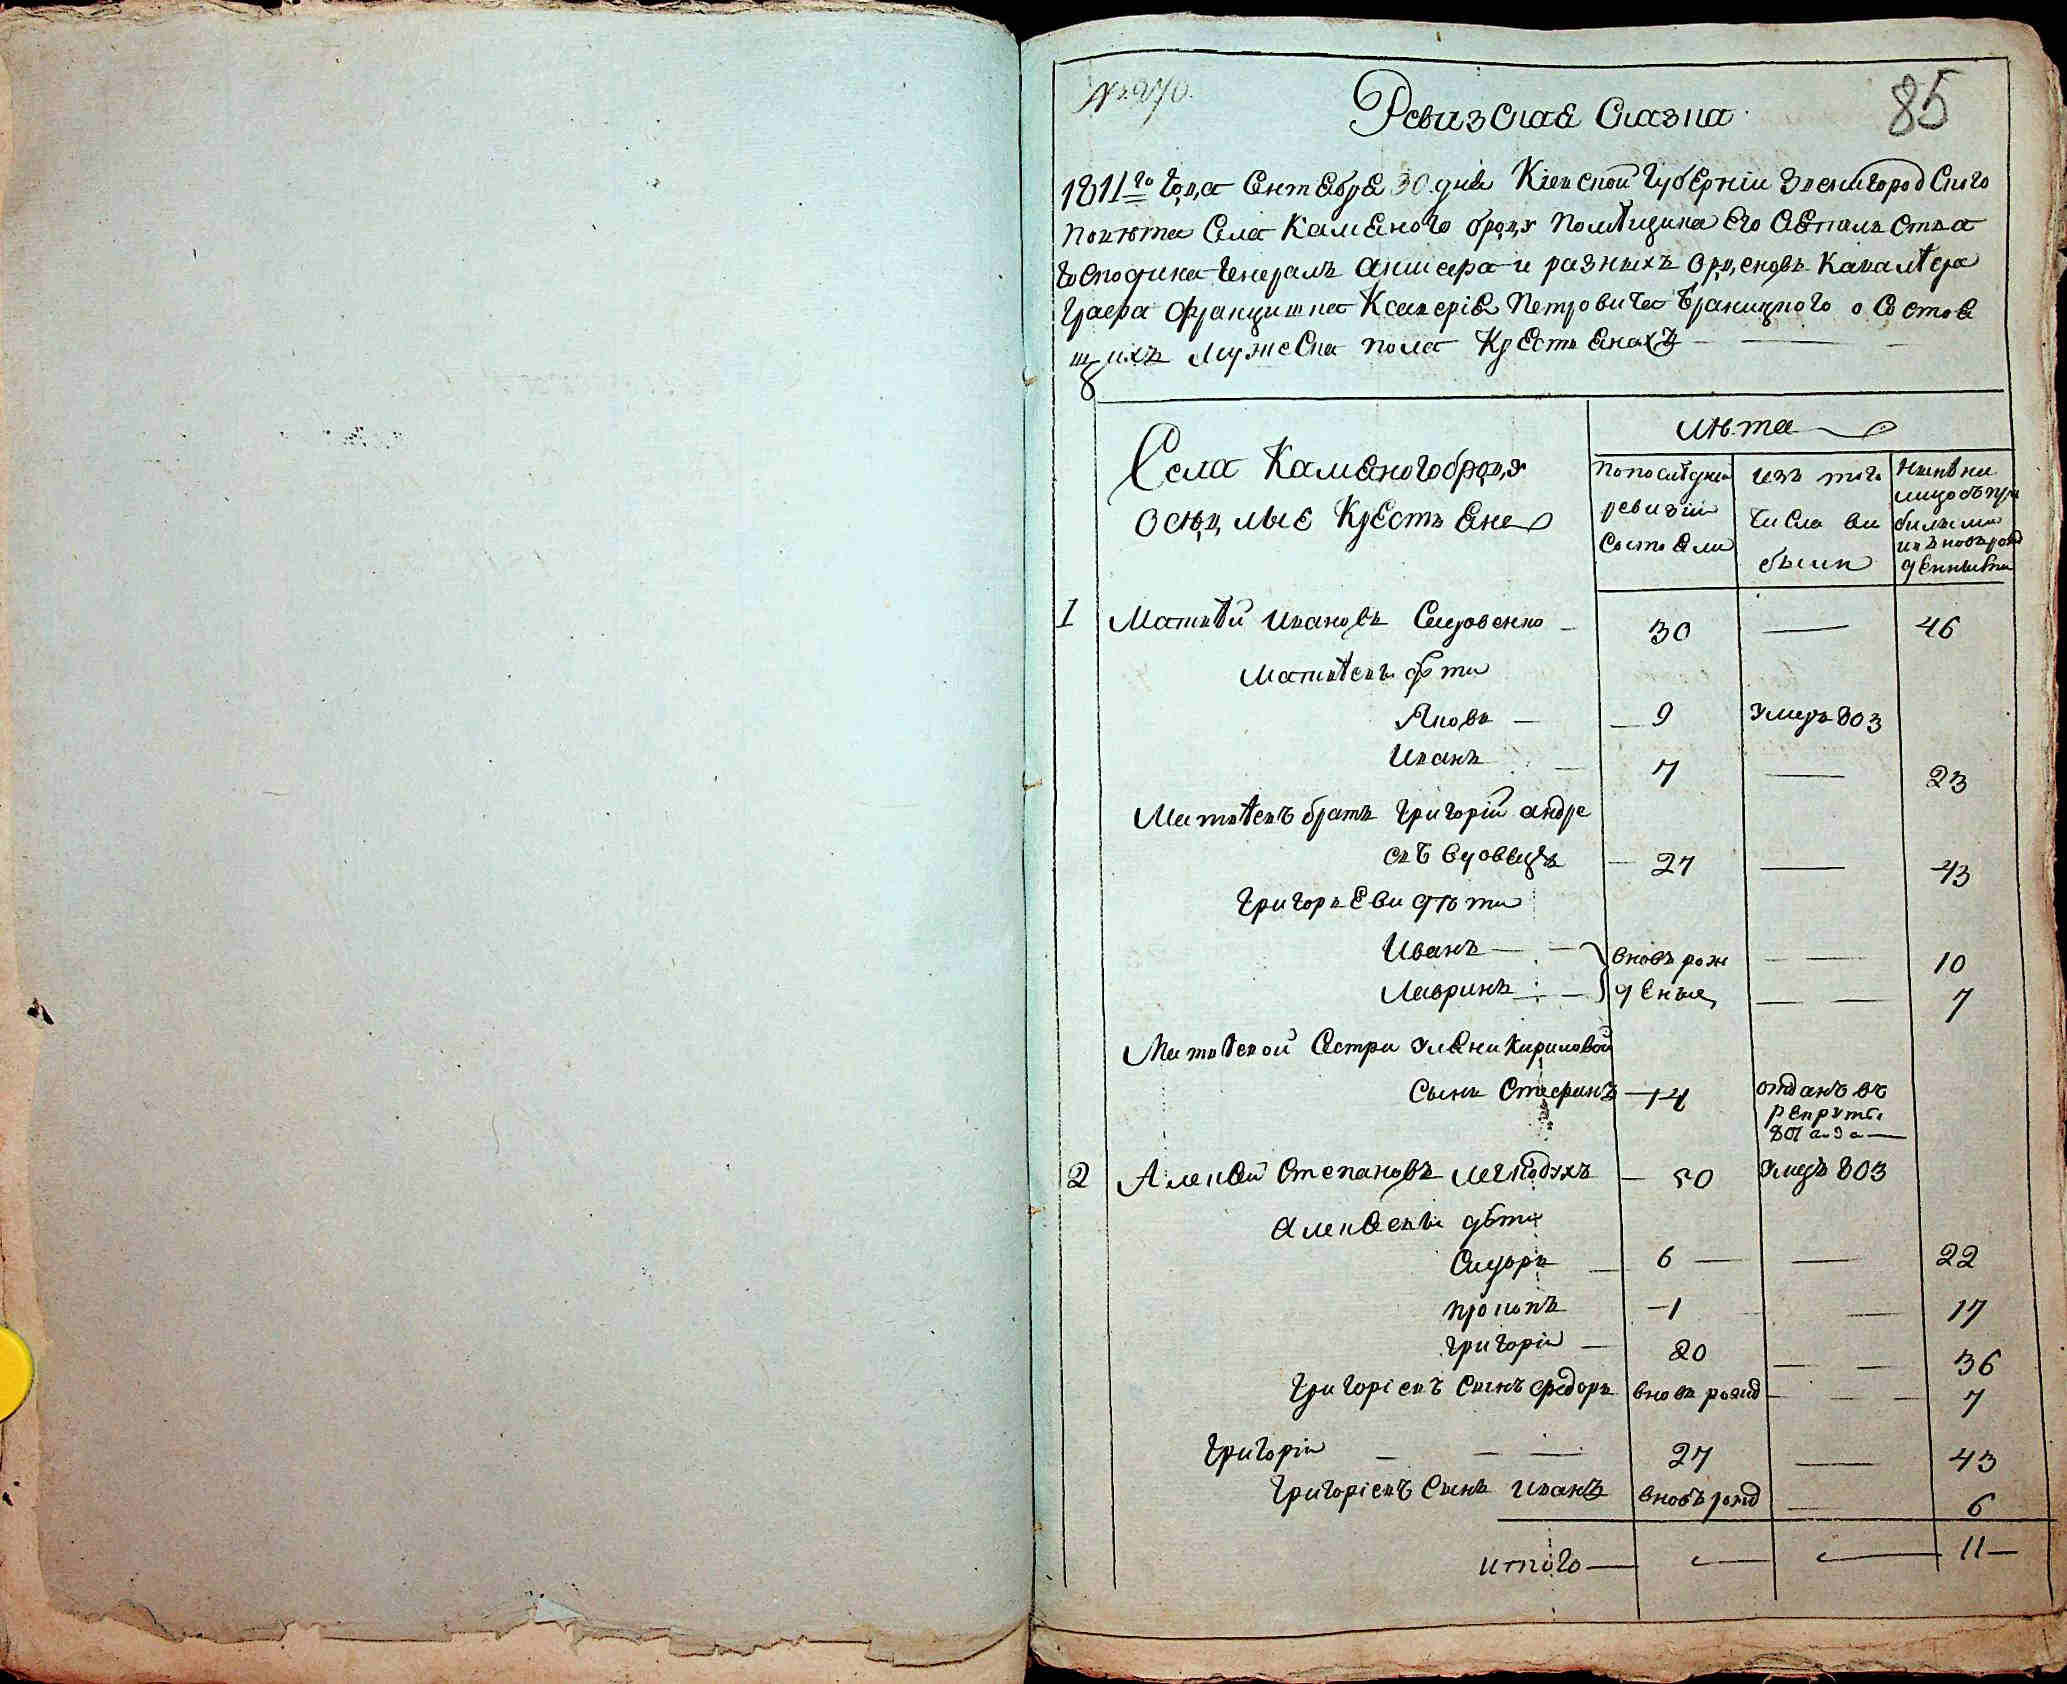 № 270.
85
Ревизская Сказка
1811го года Сентября 30 дня Кіевской губерніи Звенигородского
повѣта Села Каменого броду помѣщика Его Сіятельства
Господина Генералъ аншефа и разныхъ орденовъ Кавалѣра
Графа Францишка Ксаверія Петровича Браницкого о Состоя
щихъ мужеска пола Крестьянахъ
Села Каменогоброду
осѣдлые Крестьяне
лѣта
по последней
ревизіи
состояли
изъ того
числа вы
были
нынѣ на
лицо съ при
былыми
и вновърож
денными
1 Матвѣй Ивановъ Сидоренко 30 — 46
Матвѣевы дѣти
Яковъ — 9 умеръ 803
Иванъ 7 — 23
Матвѣевъ братъ Григорій андре
евъ 27 — 43
Григорьеви дѣти
Иванъ — вновь рож — 10
Лавринъ — деные — 7
Матвѣевой Сестри Улени Кириловой
Сынъ Стефанъ — 14 отданъ въ
рекруты
2 Алексей Степановъ — 50 умеръ 803
Алексеевы дѣти
Сидоръ — 6 — 22
Прокопъ — 1 — 17
Григорій — 20 — 36
Григоріевъ Сынъ Федоръ вновь рожд — 7
Григорій — 27 — 43
Григоріевъ Сынъ Иванъ вновь рожд — 6
итого — 11 —